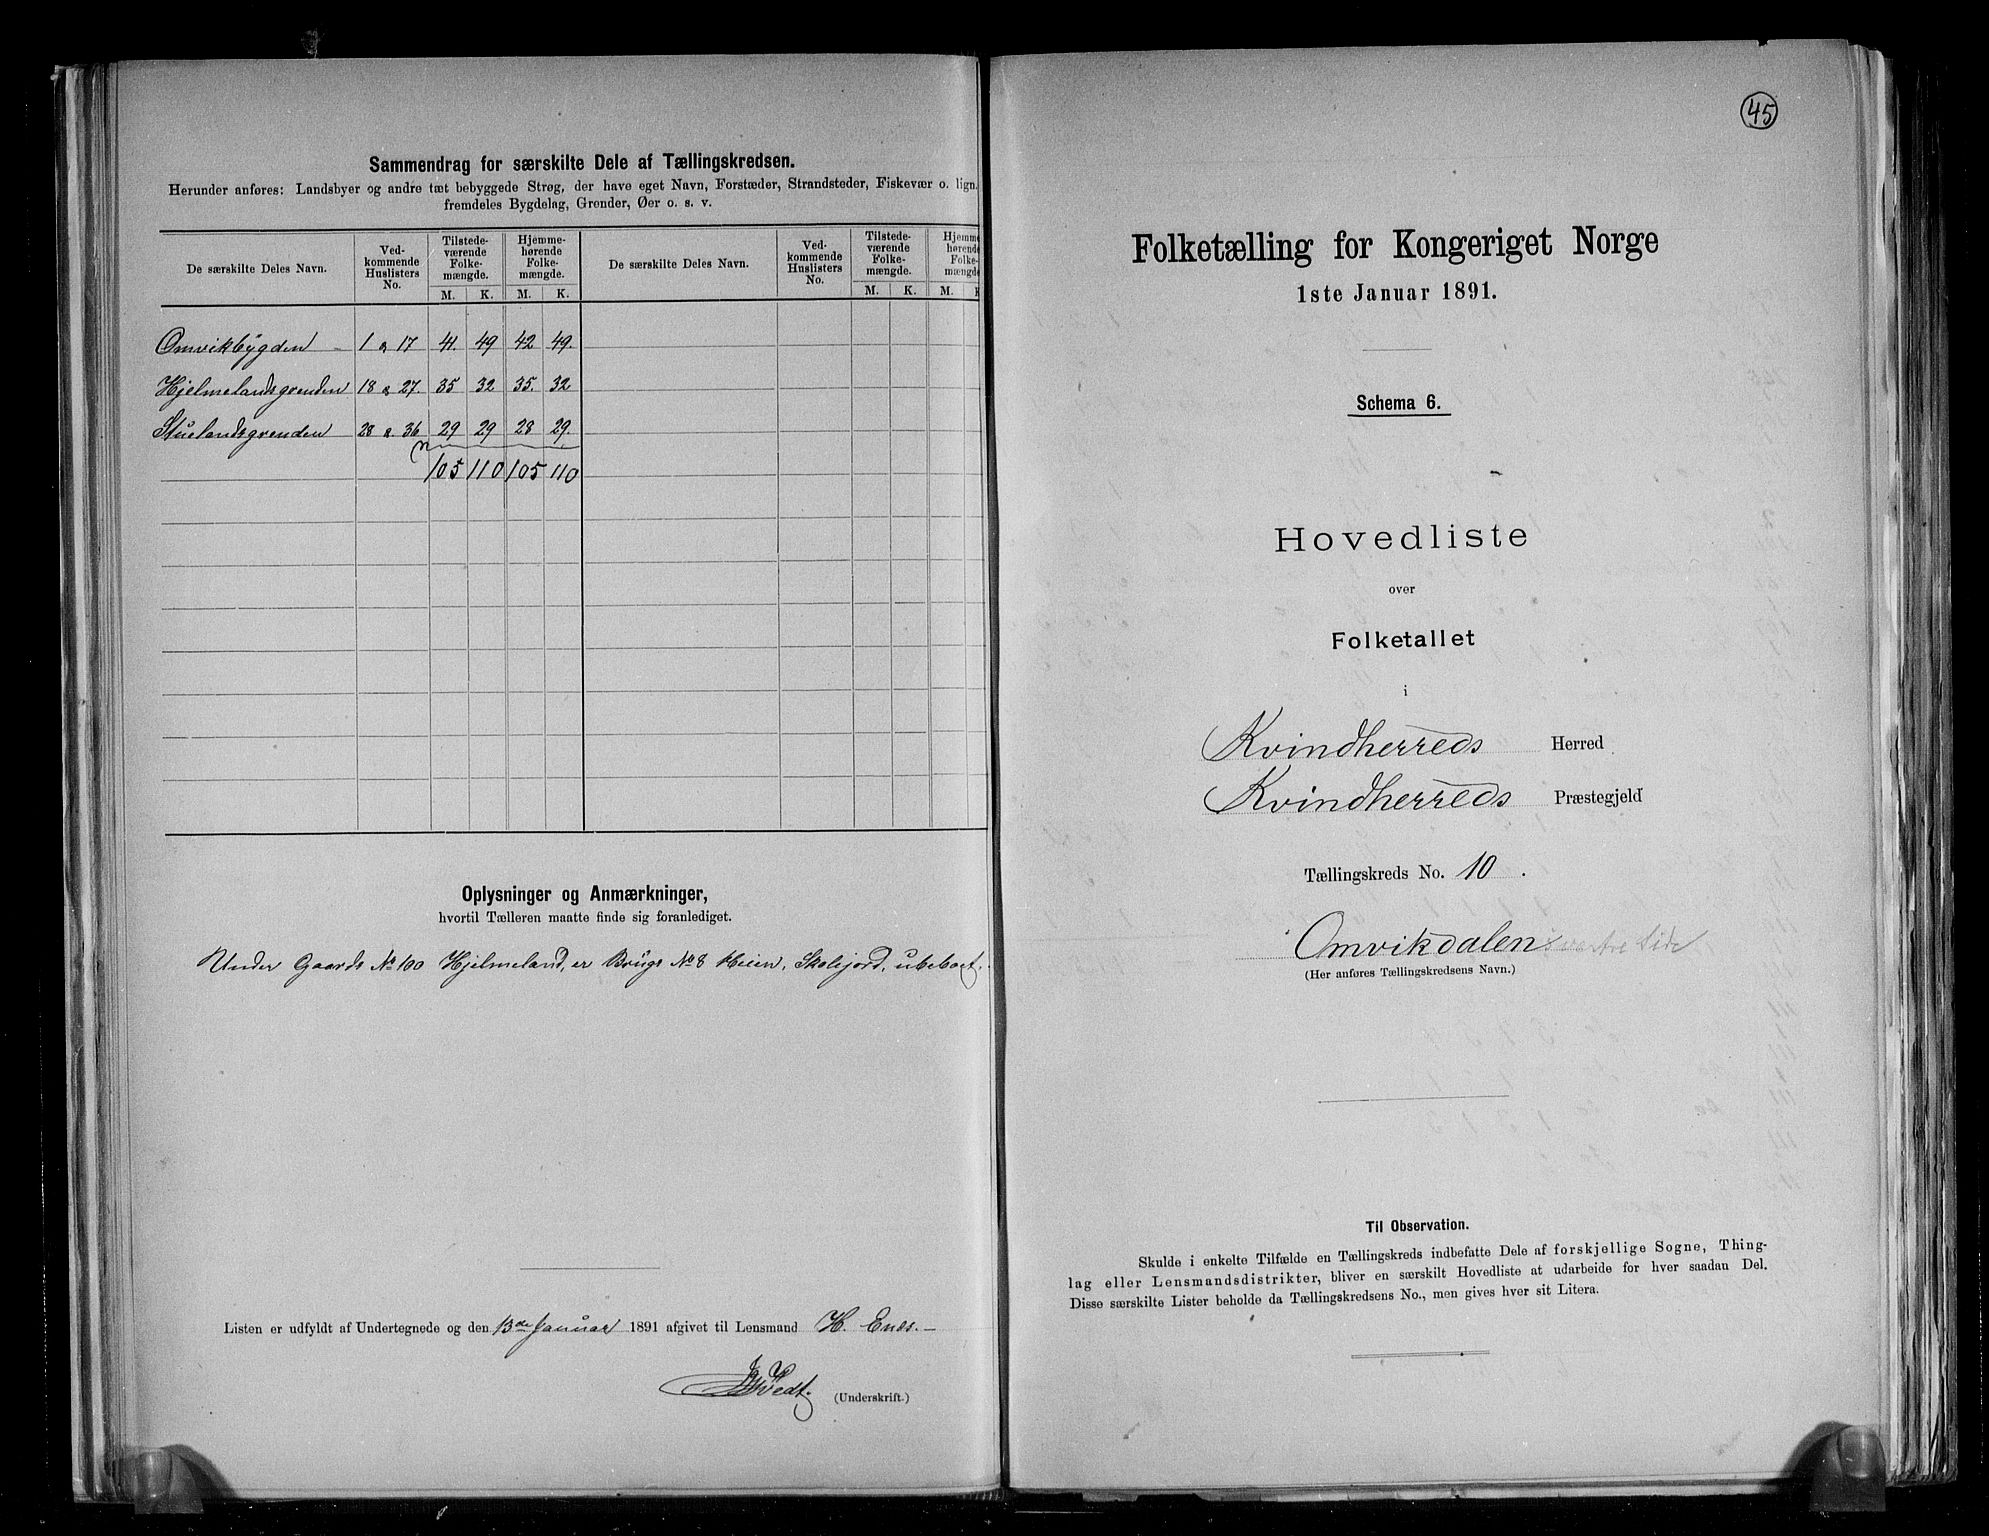 Sammendrag for særskilte Dele af Tællingskredsen.
Herunder anføres: Landsbyer og andre tæt bebyggede Strøg, der have eget Navn, Forstæder, Strandsteder, Fiskevær o. lign.
fremdeles Bygdelag, Grender, Øer o. s. v.
De særskilte Deles Navn. Ved-kommende Huslisters No. Tilstede-værende Folke-mængde. Hjemme-hørende Folke-mængde. De særskilte Deles Navn. Ved-kommende Huslisters No. Tilstede-værende Folke-mængde. Hjemme-hørende Folke-mængde
M. K. M. K. M. K. M. K
Omvikbygden 1 a 17 41. 49 42 49.
Hjelmelandsgrenden 18 a 27. 35 32 35. 32
Stuelandsgrenden 28 a. 36 29 29 28 29.
105 110 105 110
Oplysninger og Anmærkninger,
hvortil Tælleren maatte finde sig foranlediget.
Under Gaards No 100 Hjelmeland, er Brugs No 8 Heien, Skolejord, ubeboet.
Listen er udfyldt af Undertegnede og den 13de Januar 1891 afgivet til Lensmand H. Enes.
(Underskrift.)
45
Folketælling for Kongeriget Norge
1ste Januar 1891.
Schema 6.
Hovedliste
over
Folketallet
i
Kvindherreds Herred
Kvindherreds Præstegjeld
Tællingskreds No. 10.
Omvikdalens vestre Side
(Her anføres Tællingskredsens Navn.)
Til Observation.
Skulde i enkelte Tilfælde en Tællingskreds indbefatte Dele af forskjellige Sogne, Thing-
lag eller Lensmandsdistrikter, bliver en særskilt Hovedliste at udarbeide for hver saadan Del.
Disse særskilte Lister beholde da Tællingskredsens No., men gives hver sit Litera.